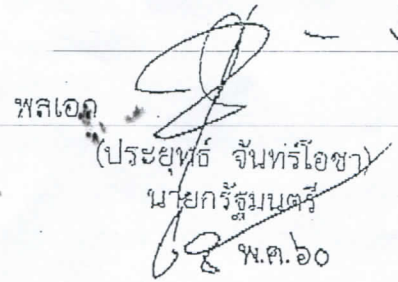 พลเอก
(ประยุทธ์ จันทร์โอชา)
นายกรัฐมนตรี
พ.ค.๖๐